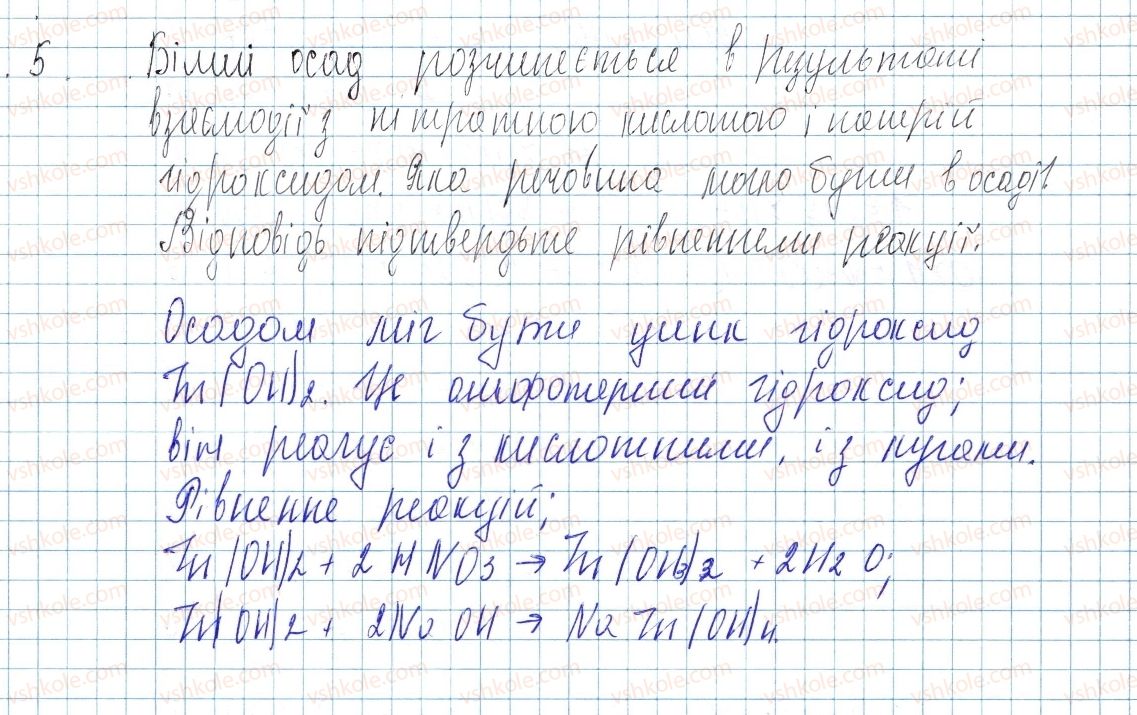 5. Білий осад розчиняється в результаті
взаємодії з нітратною кислотою і натрій
гідроксидом. Яка речовина могла бути в осаді?
Відповідь підтвердьте рівняннями реакції.
Осадом міг бути цинк гідроксид
Zn(OH)2. Це амфотерний гідроксид;
він реагує і з кислотними, і з лугами.
Рівняння реакцій;
Zn(OH)2 + 2HNO3 → Zn(OH3)2 + 2H2O;
Zn(OH)2 + 2NaOH → Na Zn(OH)4.
vshkole.com